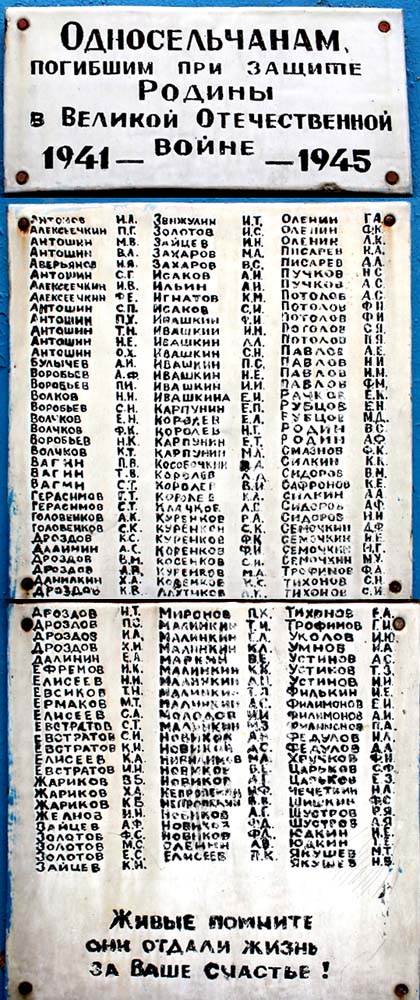 Односельчанам,
погибшим при защите
Родины
в Великой Отечественной
войне
1941 — — 1945
Антонов И.А. Звижулин И.Т. Оленин Г.А.
Алексеечкин П.Г. Золотов И.С. Оленин Ф.К.
Антошин М.В. Зайцев И.Н. Оленин Л.К.
Антошин В.А. Захаров М.А. Писарев
Аверьянов Захаров В.С. Писарев
Антошин С.Г. Исаков А.И. Пучков Н.С.
Алексеечкин И.В. Ильин А.И. Пучков А.С.
Алексеечкин Ф.Е. Игнатов К.М. Потолов
Антошин С.П. Исаков С.И. Потолов
Антошин Ивашкин Ф.И. Потолов
Антошин Т.Н. Ивашкин И.М. Поголов
Антошин Н.Е. Ивашкин Потолов П.Я.
Антошин О.Х. Ивашкин С.Н. Павлов
Булычев А.И. Ивашкин П.С. Павлов
Воробьев А.Ф. Ивашкин Н.Е. Павлов И.Н.
Воробьев П.И. Ивашкин И.И. Павлов Ф.М.
Волков Н.Н. Ивашкина Е.И. Рачков Е.К.
Воробьев С.Н. Карпунин Е.П. Рубцов Е.Н.
Волчков Е.Н. Королев Рубцов М.Д.
Волчков Ф.К. Королев Н.Т. Родин В.С.
Воробьев Н.К. Карпунин Е.Т. Родин А.Ф.
Волчков К.Т. Карпунин М.А. Смазнов Ф.К.
Вагин П.В. Кособочкин Силкин К.К.
Вагин Т.В. Королев Сидоров В.М.
Вагин С.Т. Королев В.И. Сафронов К.Е.
Герасимов Г.Т. Королев К.А. Силкин А.А.
Герасимов С.Т. Клачков Сидоров А.Ф.
Головенков А.К. Куренков Р.А. Сидоров И.Н.
Головенков С.К. Куренков С.Н. Семочкин Д.Ф.
Дроздов К.С. Куренков Ф.К. Семочкин Н.Е.
Далинин А.С. Коренков Ф.И. Семочкин М.Г.
Дроздов В.М. Косенков С.И. Семочкин М.У.
Дроздов Куренков М.А. Трофимов Ф.А.
Данилкин Х.А. Косенков М.К. Тихонов С.Х.
Дроздов К.В. Тихонов С.К.
Дроздов И.Т. Миронов П.К. Тихонов
Дроздов П.С. Малинкин Т.И. Трофимов Г.И.
Дроздов И.А. Малинкин Уколов И.Ю.
Дроздов Х.И. Малинкин К.Л. Умнов И.А.
Далинин Е.А. Маркин В.Е. Устинов А.С.
Ефремов Н.К. Малинкин К.К. Устиков Т.З.
Елисеев И.Н. Малинкин А.Н. Устинов И.И.
Евсиков Т.Н. Малинкин Т.Я. Филькин И.Е.
Ермаков М.Т. Малинкин А.С. Филимонов Е.И.
Елисеев С.А. Молодов И.И. Филимонов А.И.
Евстратов С.Т. Малинкин М.З. Филимонов П.Д.
Евстратов С.Н. Новиков А.Н. Федулов И.Л.
Евстратов К.И. Новиков А.С. Федулов Д.А.
Елисеев К.А. М.А. Хручков Ф.И.
Евстратов И.Н. Новиков В.Е. Царьков С.Ф.
Жариков В.Б. Новиков Царьков Е.З.
Жариков Х.А. Непропалин Ф.И. Чечеткин Н.А.
Жариков К.Б. Непропалин В.В. Шишкин Ф.С.
Желнов И.И. Новиков А.Г. Шустров Р.Я.
Зайцев А.Ф. Новиков Ф.Д. Шустров А.Я.
Золотов Ф.С. Новиков Ф.Д. Юдкин И.Е.
Золотов М.С. Оленин А.В. Юдкин П.Е.
Золотов Е.С. Елисеев П.К. Якушев М.Т.
Зайцев К.И. Якушев Н.В.
Живые помните
они отдали жизнь
за Ваше счастье!